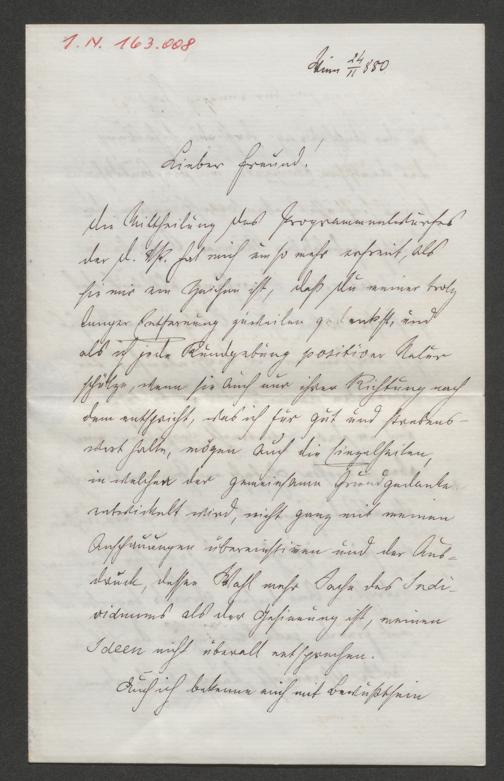 I. N. 163.008
Wien 24/11 880
Lieber Freund!
Die Mittheilung des Programmentwurfes
der d. Vp. hat mich um so mehr erfreut, als
sie mir ein Zeichen ist, daß Du meiner trotz
langer Entfernung zuweilen gedenkst, und
als ich jede Kundgebung positiver Natur
schätze, wenn sie auch nur ihrer Richtung nach
dem entspricht, was ich für gut und strebens-
wert halte, mögen auch die Einzelheiten,
in welchen der gemeinsame Grundgedanke
entwickelt wird, nicht ganz mit meinen
Anschauungen übereinstimmen und der Aus-
druck, dessen Wahl mehr Sache des Indi-
viduums als der Gesinnung ist, meinen
Ideen nicht überall entsprechen.
Auch ich bekenne mich mit Bewußtsein